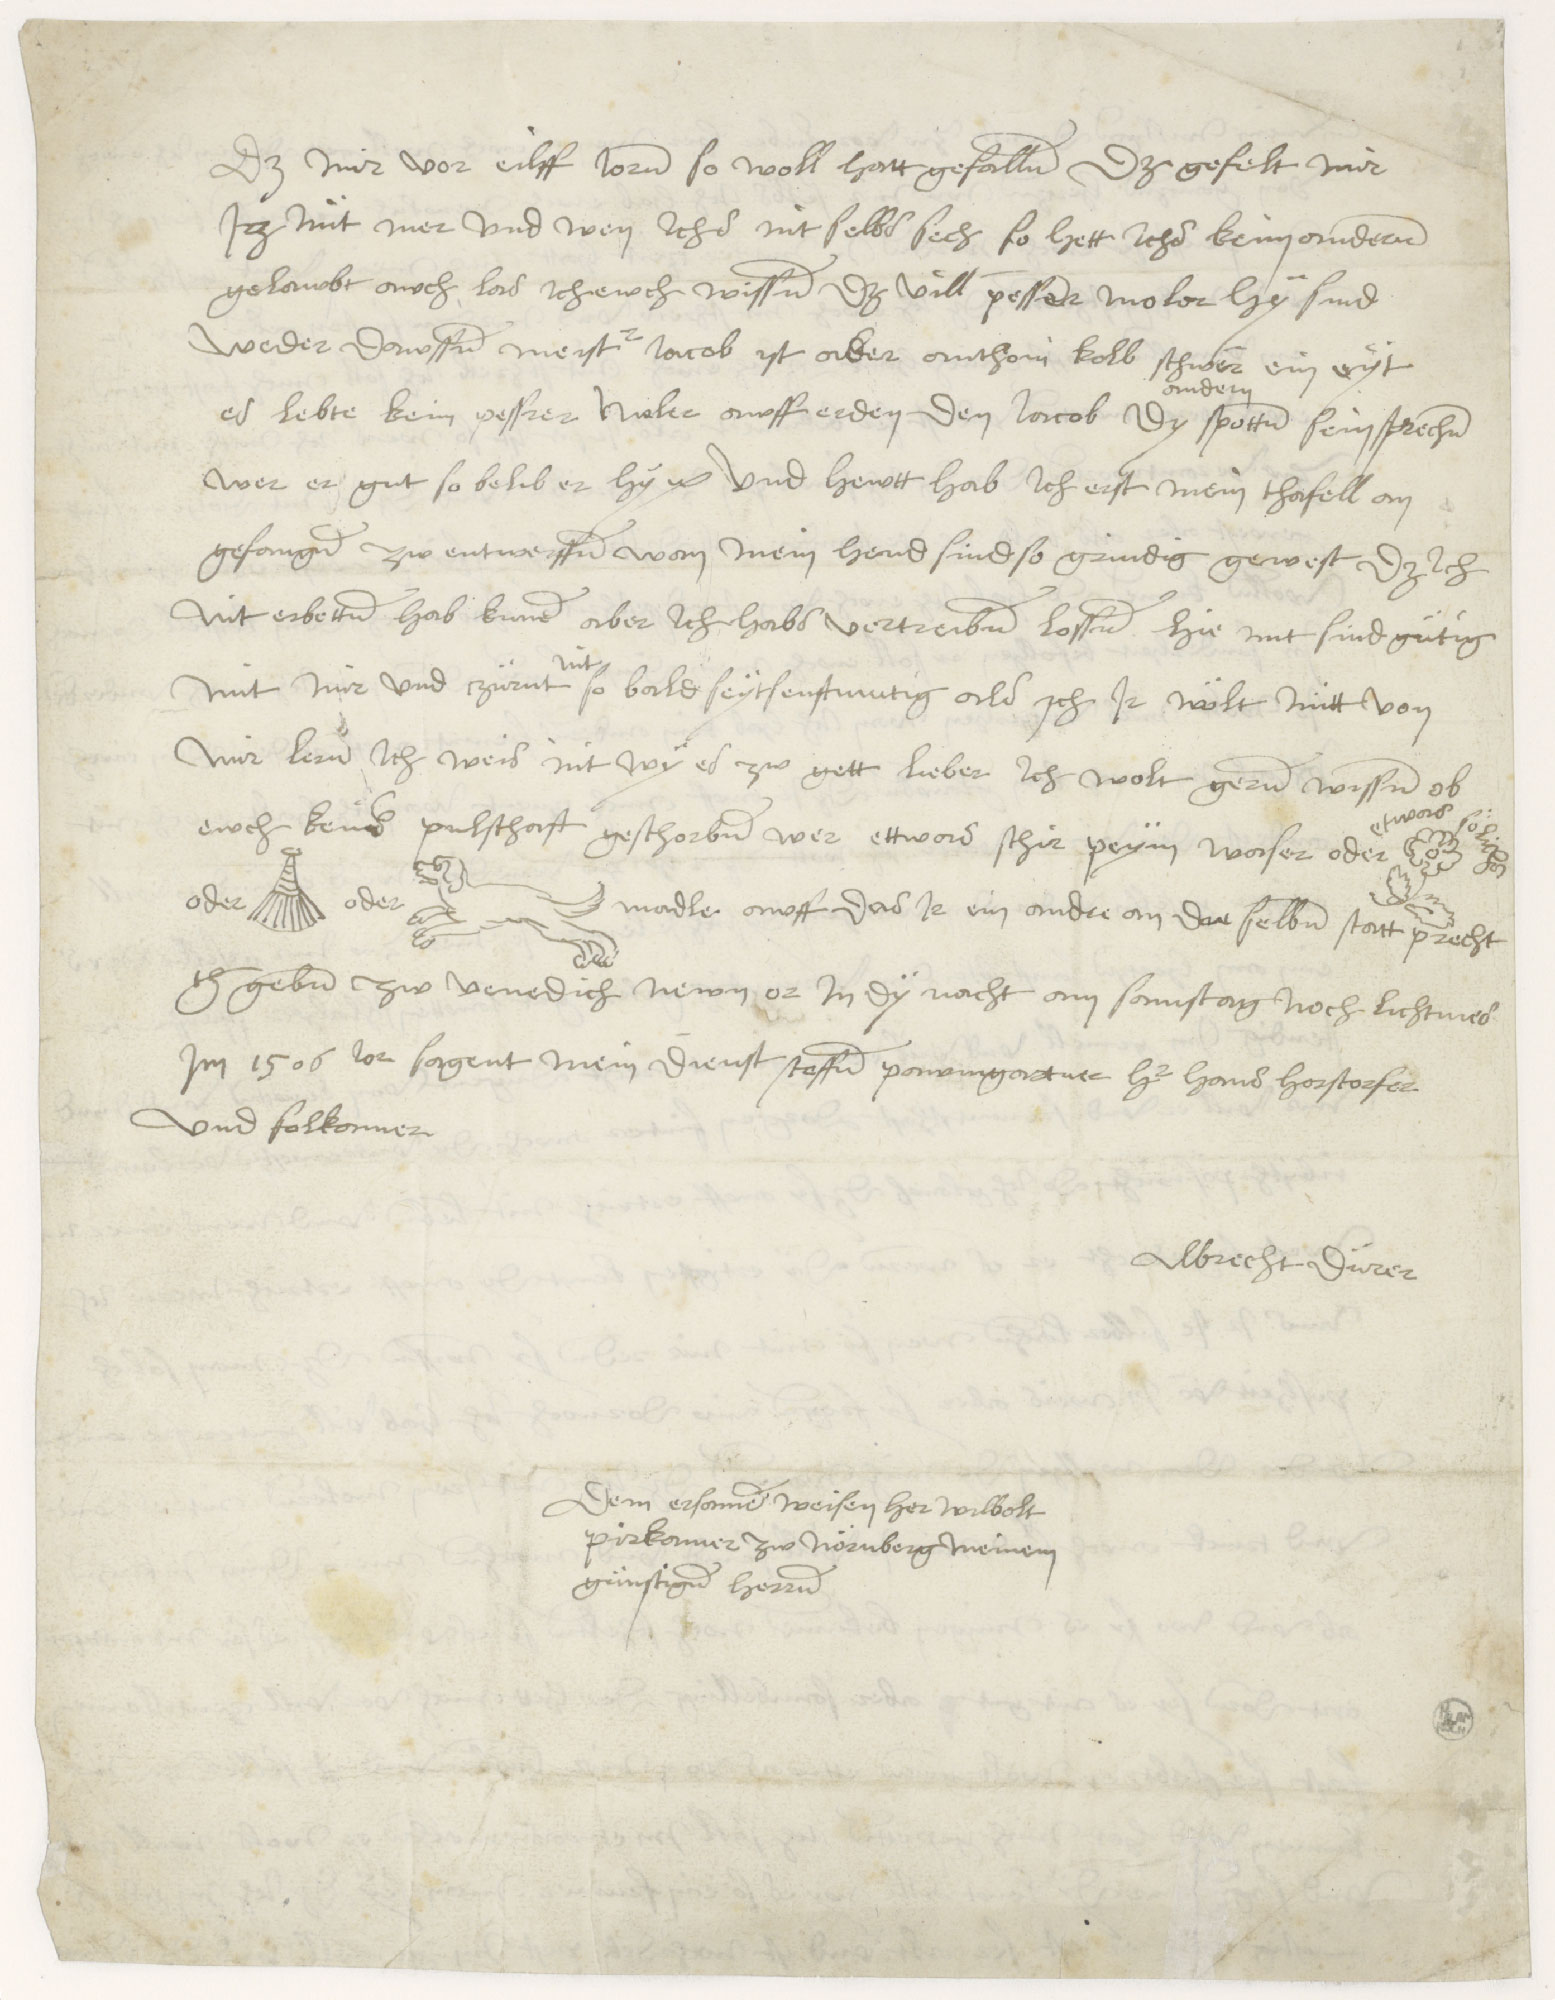 Dz mir vor eilff jorn so woll hatt gefalln dz gefelt mir
jcz nüt mer vnd wen ichs nit selbs sech so hett ichs keim anderen
gelawbt awch las ich ewch wissn dz vill pesser moler hÿ sind
weder dawssn meistr jacob ist aber anthoni kolb schwer ein eÿt
es lebte kein pessrer moler awff erden den jacob dy andern spottn sein sprechn
wer er gut so belib er hÿ vnd hewtt hab ich erst mein thafell an
gefangn zw entwerffn wan mein hend sind so grindig gewest dz ich
nit erbettn hab kunen aber ich habs vertreibn lossn hie mit sind gütig
mit mir vnd czürnt nit so bald seÿt senftmutig als jch jr wölt nütt von
mir lern ich weis nit wÿ es zw gett lieber ich wolt gern wissn ob
ewch keins pulschaft geschtorbn wer ettwas schir peÿm waser oder etwas sölichs
oder oder madle awff das jr ein andre an der selbn statt precht
gebn zw venedich newn or in dÿ nacht am samstag noch lichtmes
jm 1506 jor sagent mein dienst steffn pawmgartner hr hans horstorfer
vnd folkamer
Albrecht Dürer
Dem ersamen weisen her wilbolt
pirkamer zw nörnberg meinem
günstign herrn